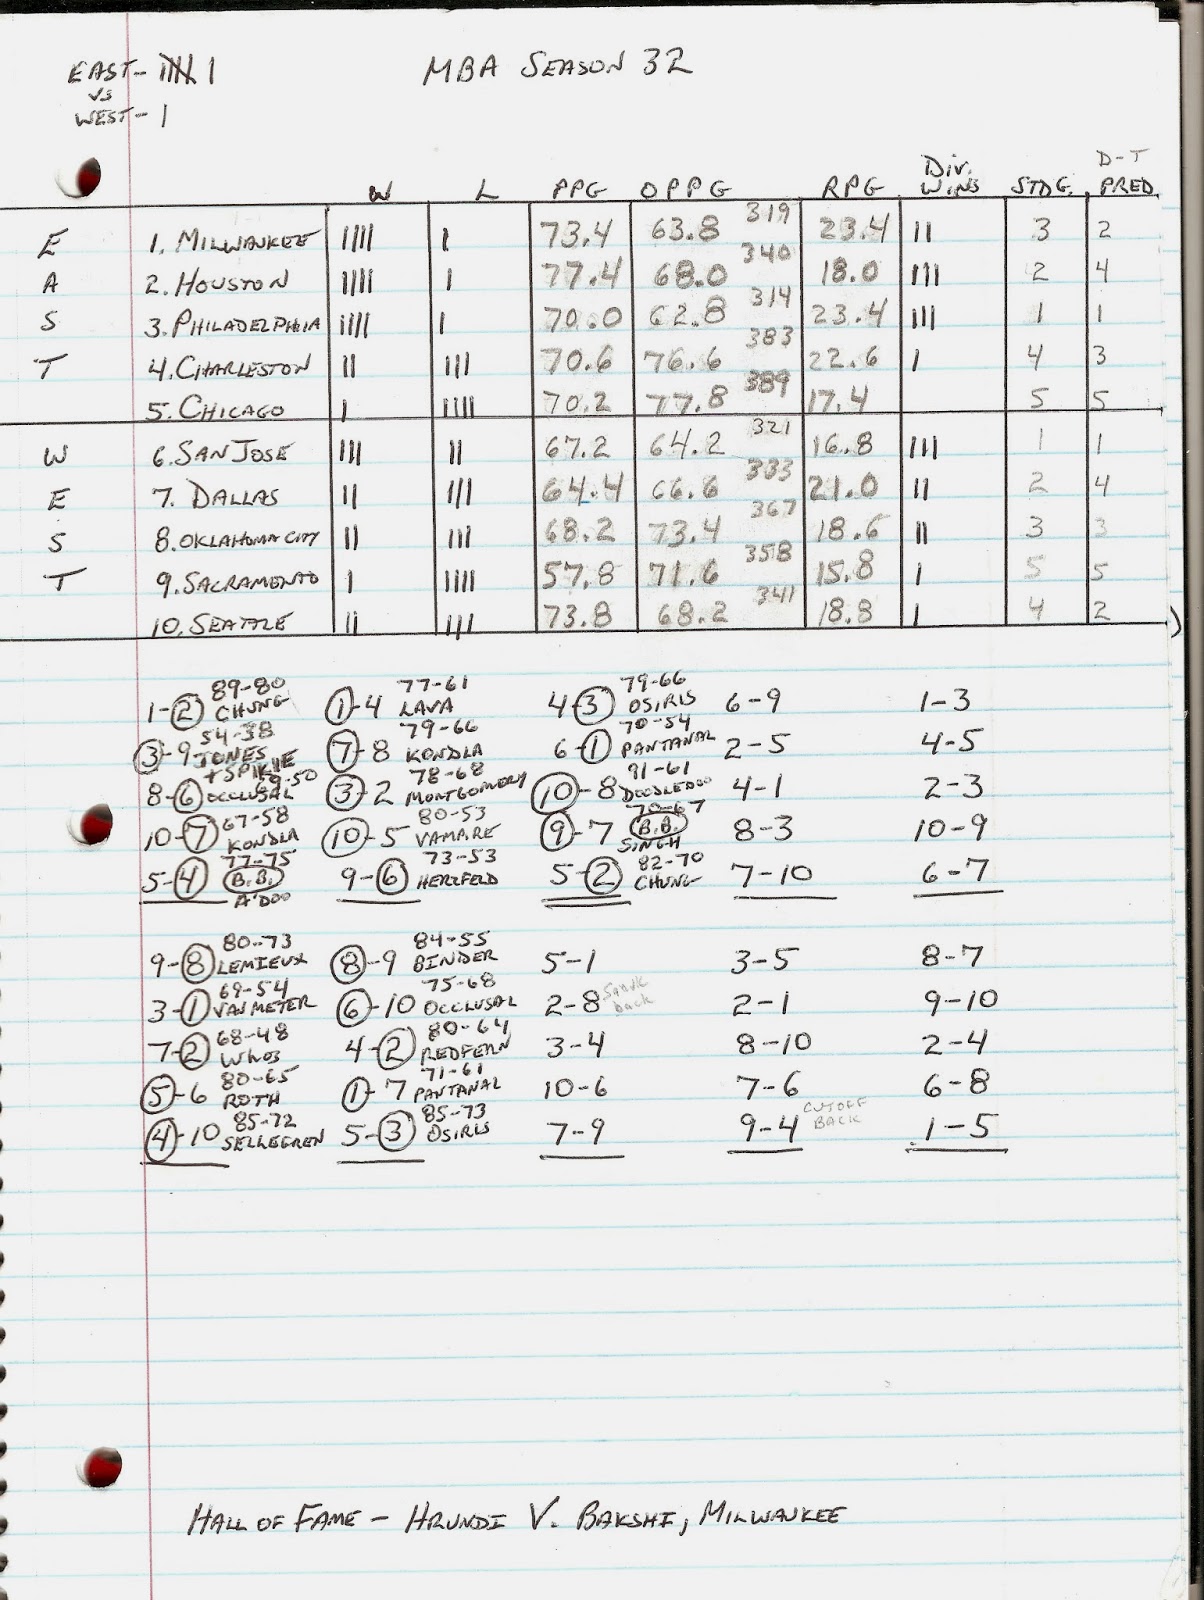 EAST - 𝍸 1 MBA SEASON 32
VS
WEST - 1
W L PPG OPPG RPG Div. Wins STDG. D-T PRED.
E 1. MILWAUKEE IIII I 73.4 63.8 319 23.4 II 3 2
A 2. HOUSTON IIII I 77.4 68.0 340 18.0 III 2 4
S 3. PHILADELPHIA IIII I 70.0 62.8 314 23.4 III 1 1
T 4. CHARLESTON II III 70.6 76.6 383 22.6 I 4 3
5. CHICAGO I IIII 70.2 77.8 389 17.4 5 5
W 6. SAN JOSE III II 67.2 64.2 321 16.8 III 1 1
E 7. DALLAS II III 64.4 66.6 333 21.0 II 2 4
S 8. OKLAHOMA CITY II III 68.2 73.4 367 18.6 II 3 3
T 9. SACRAMENTO I IIII 57.8 71.6 358 15.8 I 5 5
10. SEATTLE II III 73.8 68.2 341 18.8 I 4 2
1-2 89-80 CHUNG 1-4 77-61 LAVA 4-3 79-66 OSIRIS 6-9 1-3
3-9 54-38 JONES + SPIKIE 7-8 79-66 KONDLA 6-1 70-54 PANTANAL 2-5 4-5
8-6 OCCLUSAL 3-2 78-68 MONTGOMERY 10-8 91-61 DOODLEDOO 4-1 2-3
10-7 67-58 KONDLA 10-5 80-53 VAMPIRE 9-7 70-67 B.B. SINGH 8-3 10-9
5-4 77-75 B.B. A'DOO 9-6 73-53 HERZFELD 5-2 82-70 CHUNG 7-10 6-7
9-8 80-73 LEMIEUX 8-9 84-55 BINDER 5-1 3-5 8-7
3-1 69-54 VANMETER 6-10 75-68 OCCLUSAL 2-8 back 2-1 9-10
7-2 68-48 WHOS 4-2 80-64 REDFERN 3-4 8-10 2-4
5-6 80-65 ROTH 1-7 71-61 PANTANAL 10-6 7-6 6-8
4-10 85-72 SELLEGREN 5-3 85-73 OSIRIS 7-9 9-4 CUTOFF BACK 1-5
HALL OF FAME - HRUNDI V. BAKSHI, MILWAUKEE